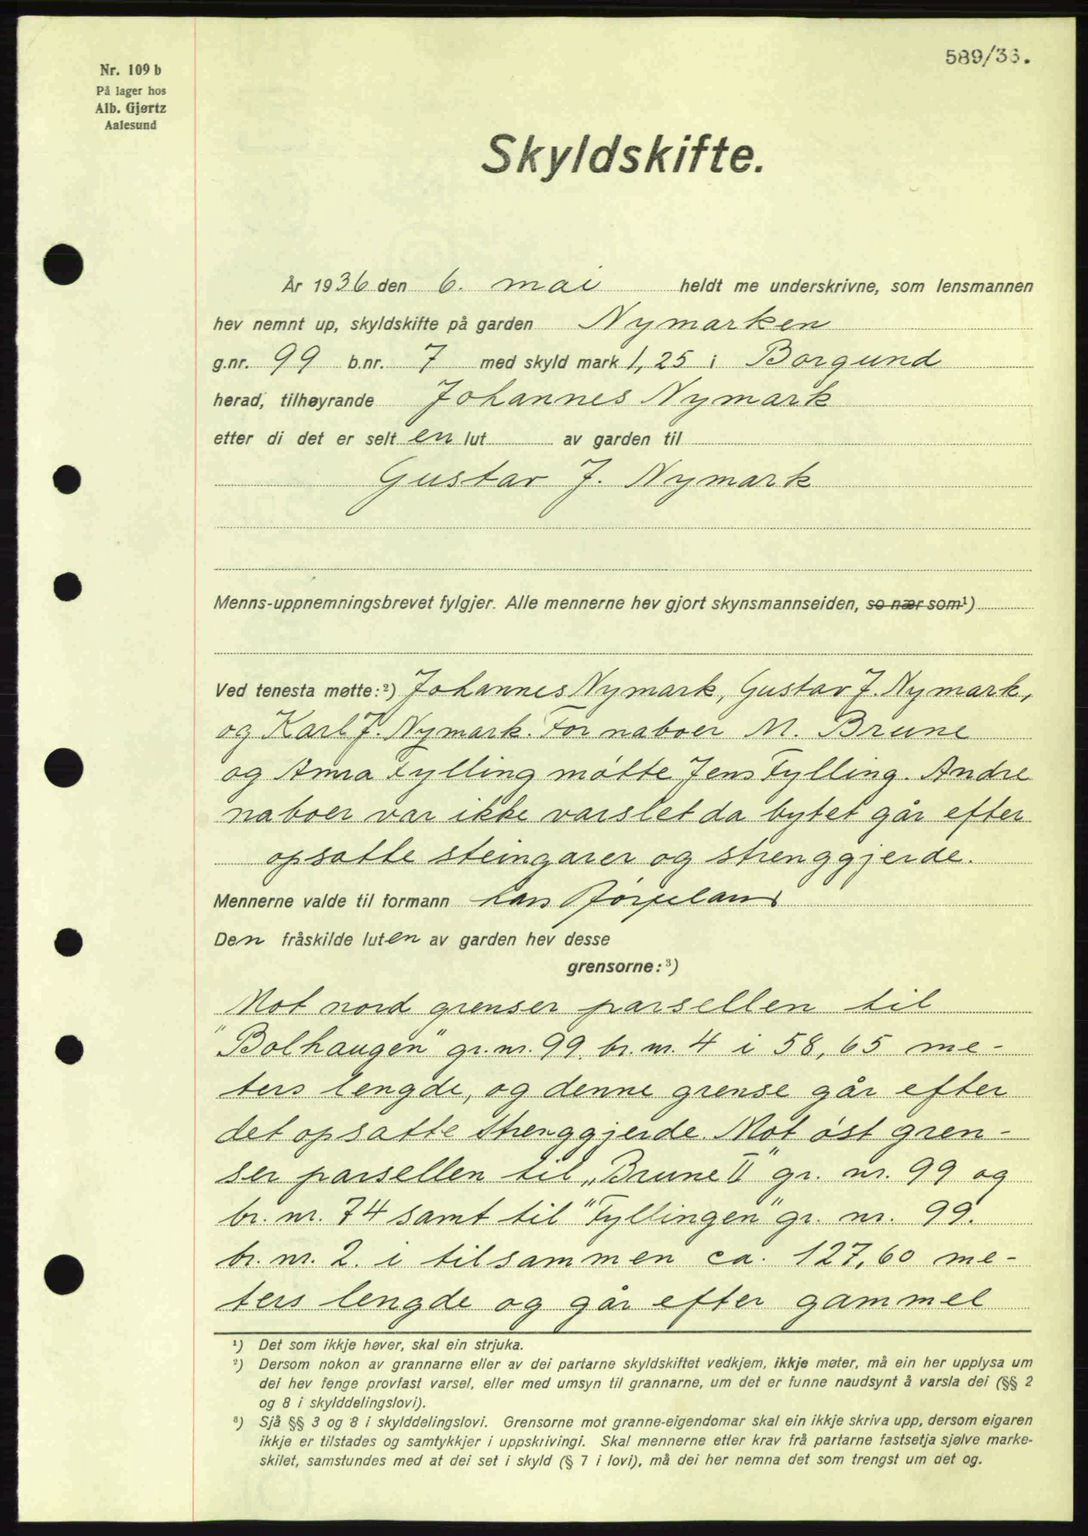 589/36.
Nr. 109 b
På lager hos
Alb. Gjørtz
Aalesund
Skyldskifte.
År 1936 den 6. mai heldt me underskrivne, som lensmannen
hev nemnt up, skyldskifte på garden Nymarken
g.nr. 99 b.nr. 7 med skyld mark 1,25 i Borgund
herad, tilhøyrande Johannes Nymark
etter di det er selt en lut av garden til
Gustav J. Nymark
Menns-uppnemningsbrevet fylgjer. Alle mennerne hev gjort skynsmannseiden, so nær som¹)
Ved tenesta møtte:²) Johannes Nymark, Gustav J. Nymark,
og Karl J. Nymark. For naboer M. Brune
og Anna Fylling møtte Jens Fylling. Andre
naboer var ikke varslet da bytet går efter
opsatte steingarer og strenggjerde.
Mennerne valde til formann Lars
Den fråskilde luten av garden hev desse
grensorne:³)
Mot nord grenser parsellen til
"Bolhaugen" gr. nr. 99. br. nr. 4 i 58,65 me-
ters lengde, og denne grense går efter
det opsatte strenggjerde. Mot øst gren-
ser parsellen til „Brune II" gr. nr. 99 og
br. nr. 74 samt til "Fyllingen" gr. nr. 99.
br. nr. 2. i tilsammen ca. 127,60 me-
ters lengde og går efter gammel
¹) Det som ikkje høver, skal ein strjuka.
²) Dersom nokon av grannarne eller av dei partarne skyldskiftet vedkjem, ikkje møter, må ein her upplysa um
dei hev fenge provfast varsel, eller med umsyn til grannarne, um det er funne naudsynt å varsla dei (§§ 2
og 8 i skylddelingslovi).
³) Sjå §§ 3 og 8 i skylddelingslovi. Grensorne mot granne-eigendomar skal ein ikkje skriva upp, dersom eigaren
ikkje er tilstades og samtykkjer i uppskrivingi. Skal mennerne etter krav frå partarne fastsetja sjølve marke-
skilet, samstundes med at dei set i skyld (§ 7 i lovi), må dei her nemna det som trengst um det og.